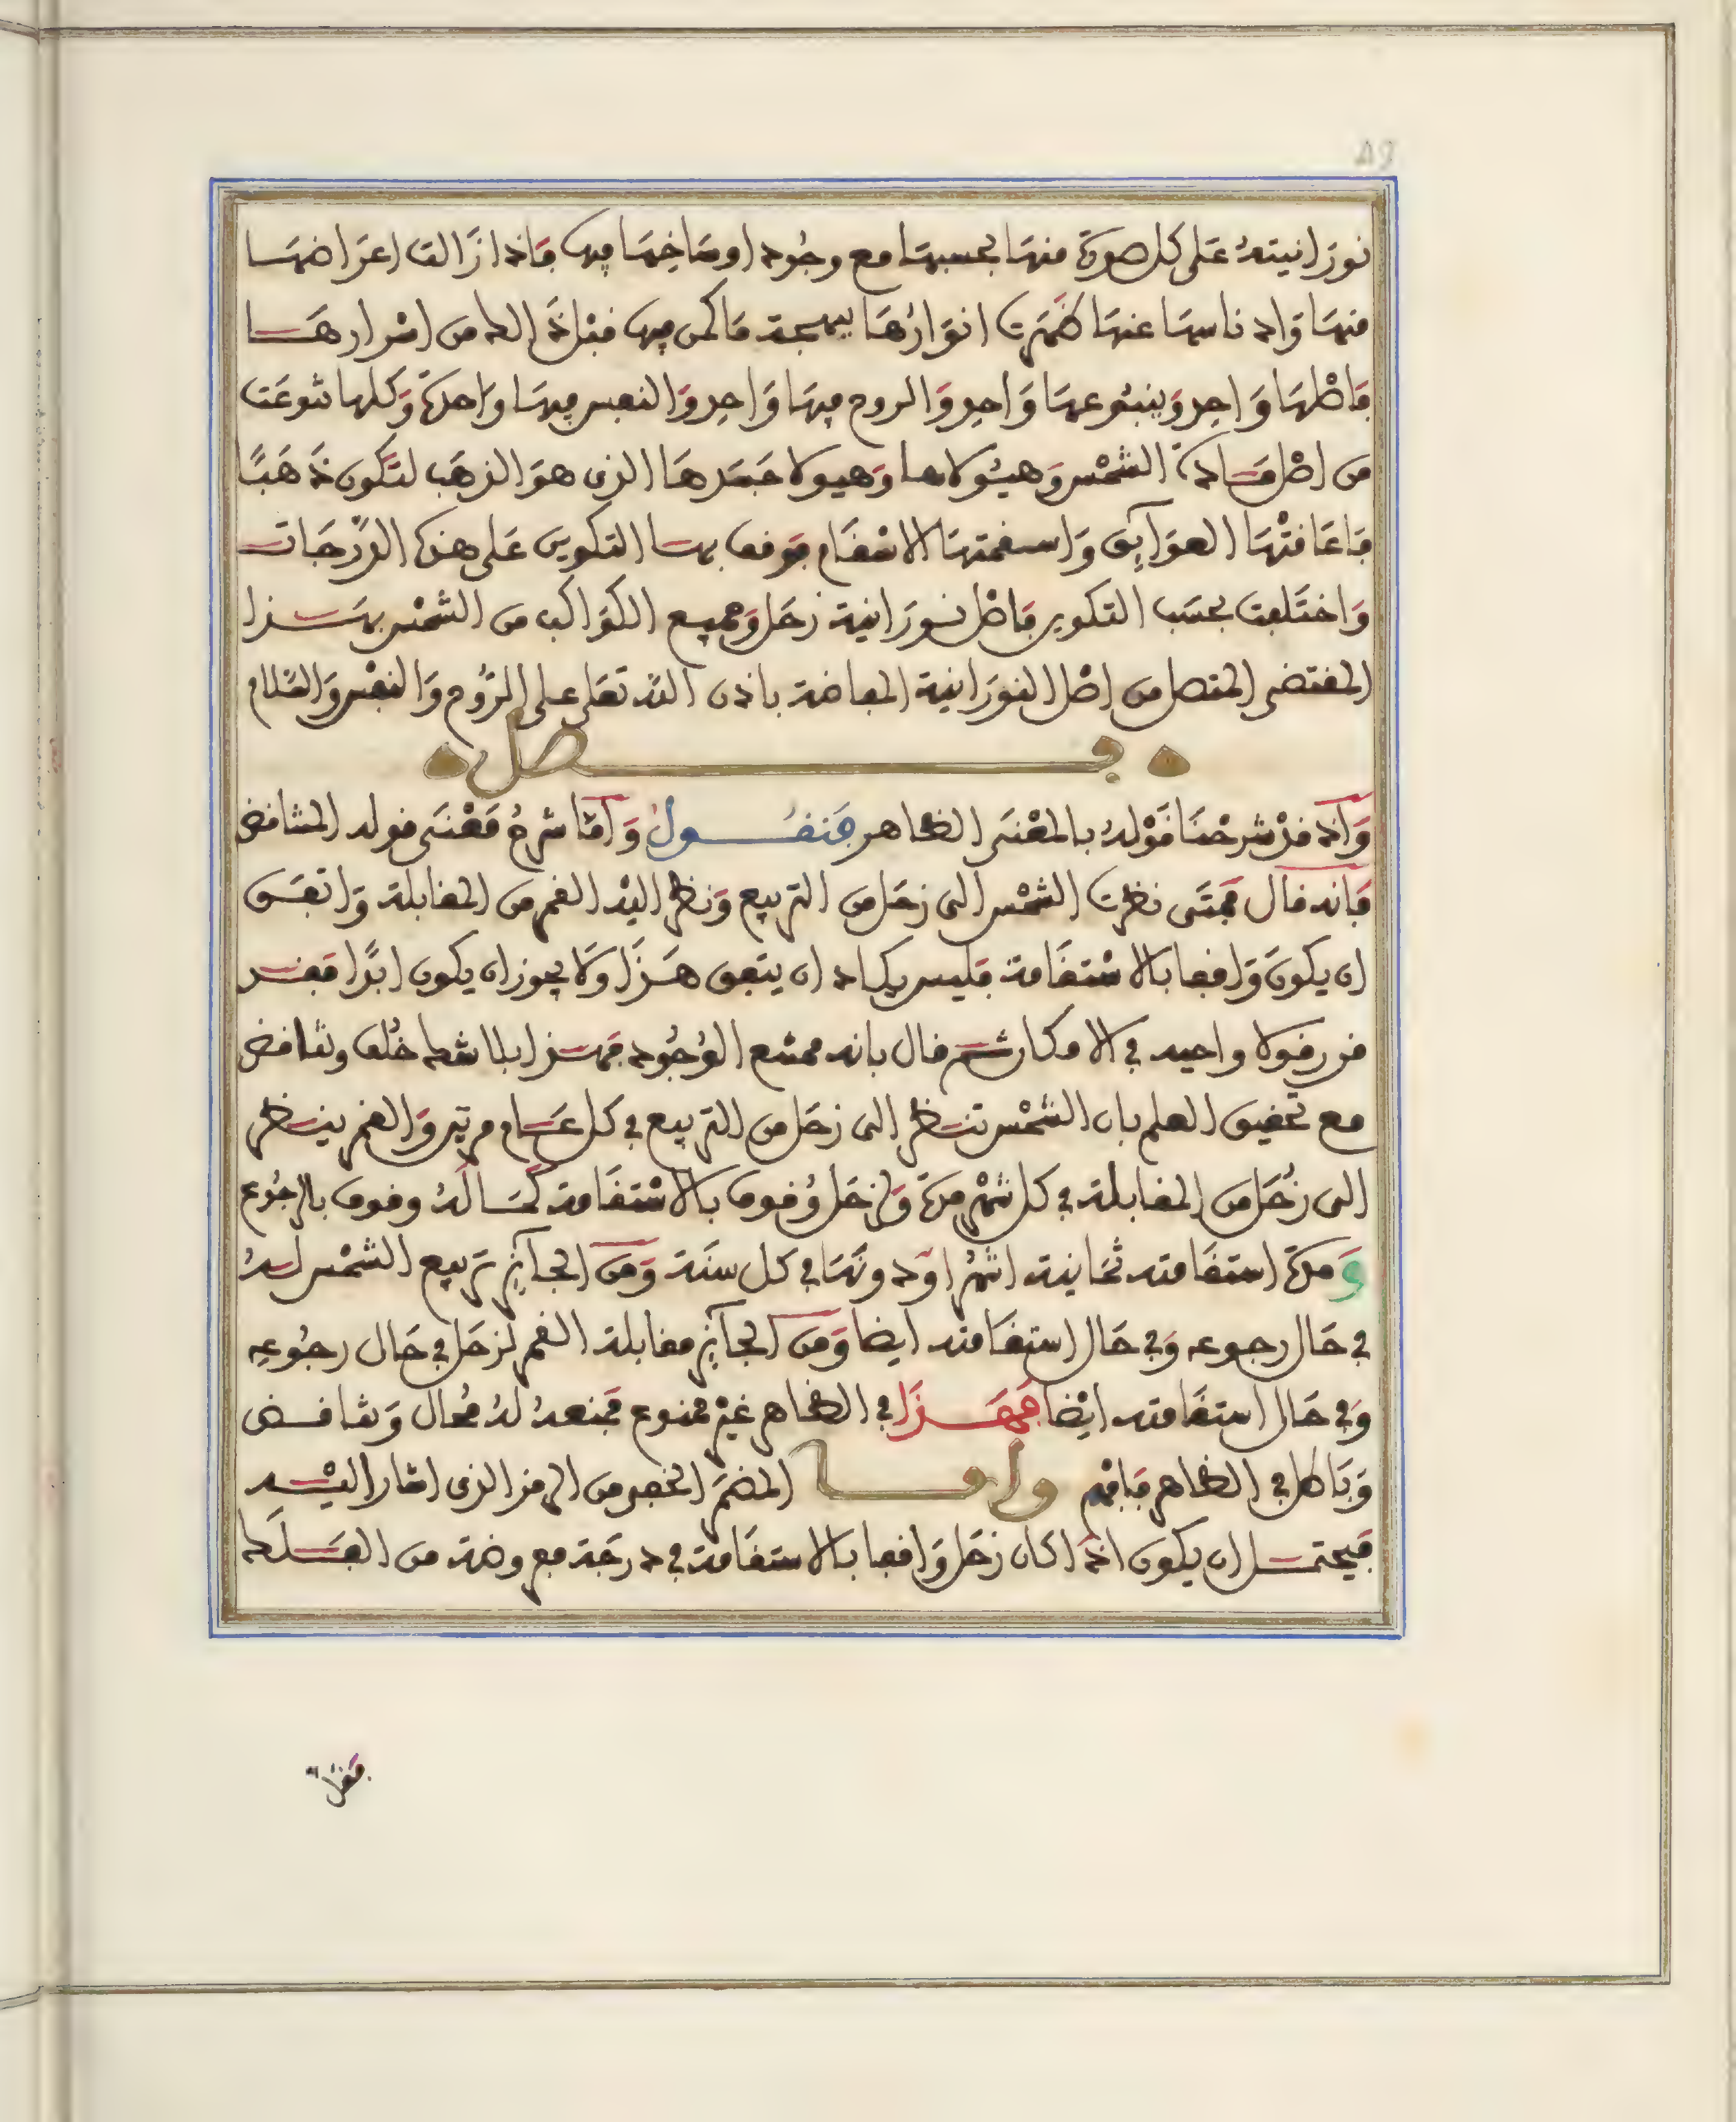 نورانيته على كل صورة منها بحسبها مع وجود اوساخها فيها فاذا زالت اعراضها
منها وادناسها عنها ظهرت انوارها ببهجة ما كمن فيها قبل ذالك من اسرارها
فاصلها واحد وينبوعها واحد والروح فيها واحد والنفس فيها واحدة وكلها شوعت
من اصل مادة الشمس وهيولاها وهيولا جسدها الذى هو الذهب لتكون ذهبًا
فاعاقتها العوايق واسقمتها الاسقام فوقف بها التكوين على هذه الدرجات
واختلفت بحسب التكوين فاصل نورانية زحل وجميع الكواكب من الشمس بهذا
المقتضى المتصل من اصل النورانية المفاضة باذن الله تعلى على الروح والنفس والسلام
فصل
واذ قد شرحنا قوله بالمعنى الظاهر فنقول واما شرح معنى قوله المتناقض
فانه قال فمتى نظرت الشمس الى زحل من التربيع ونظر اليه القمر من المقابلة واتفق
ان يكون واقفا بالاستقامة فليس يكاد ان يتفق هذا ولا يجوز ان يكون ابدا فقد
قدر قولا واحيد في الامكان ثم قال بانه ممتنع الوجود فهذا بلا شك خلف وتناقض
مع تحقيق العلم بان الشمس تنظر الى زحل من التربيع في كل عام مرتين والقمر ينظر
الى زحل من المقابلة في كل شهر مرة ولزحل وقوف بالاستقامة كما له وقوف بالرجوع
ومدة استقامته ثمانية اشهر او دونها في كل سنة ومن الجائز تربيع الشمس له
في حال رجوعه وفي حال استقامته ايضا ومن الجائز مقابلة القمر لزحل في حال رجوعه
وفي حال استقامته ايضا فهذا في الظاهر غير ممنوع فمنعه له محال وتناقض
وباطل في الظاهر فافهم واما المضمر الخفى من الرمز الذى اشار اليه
فيحتمل ان يكون اذا كان زحل واقفا بالاستقامة في درجة مع وضة من الفلك